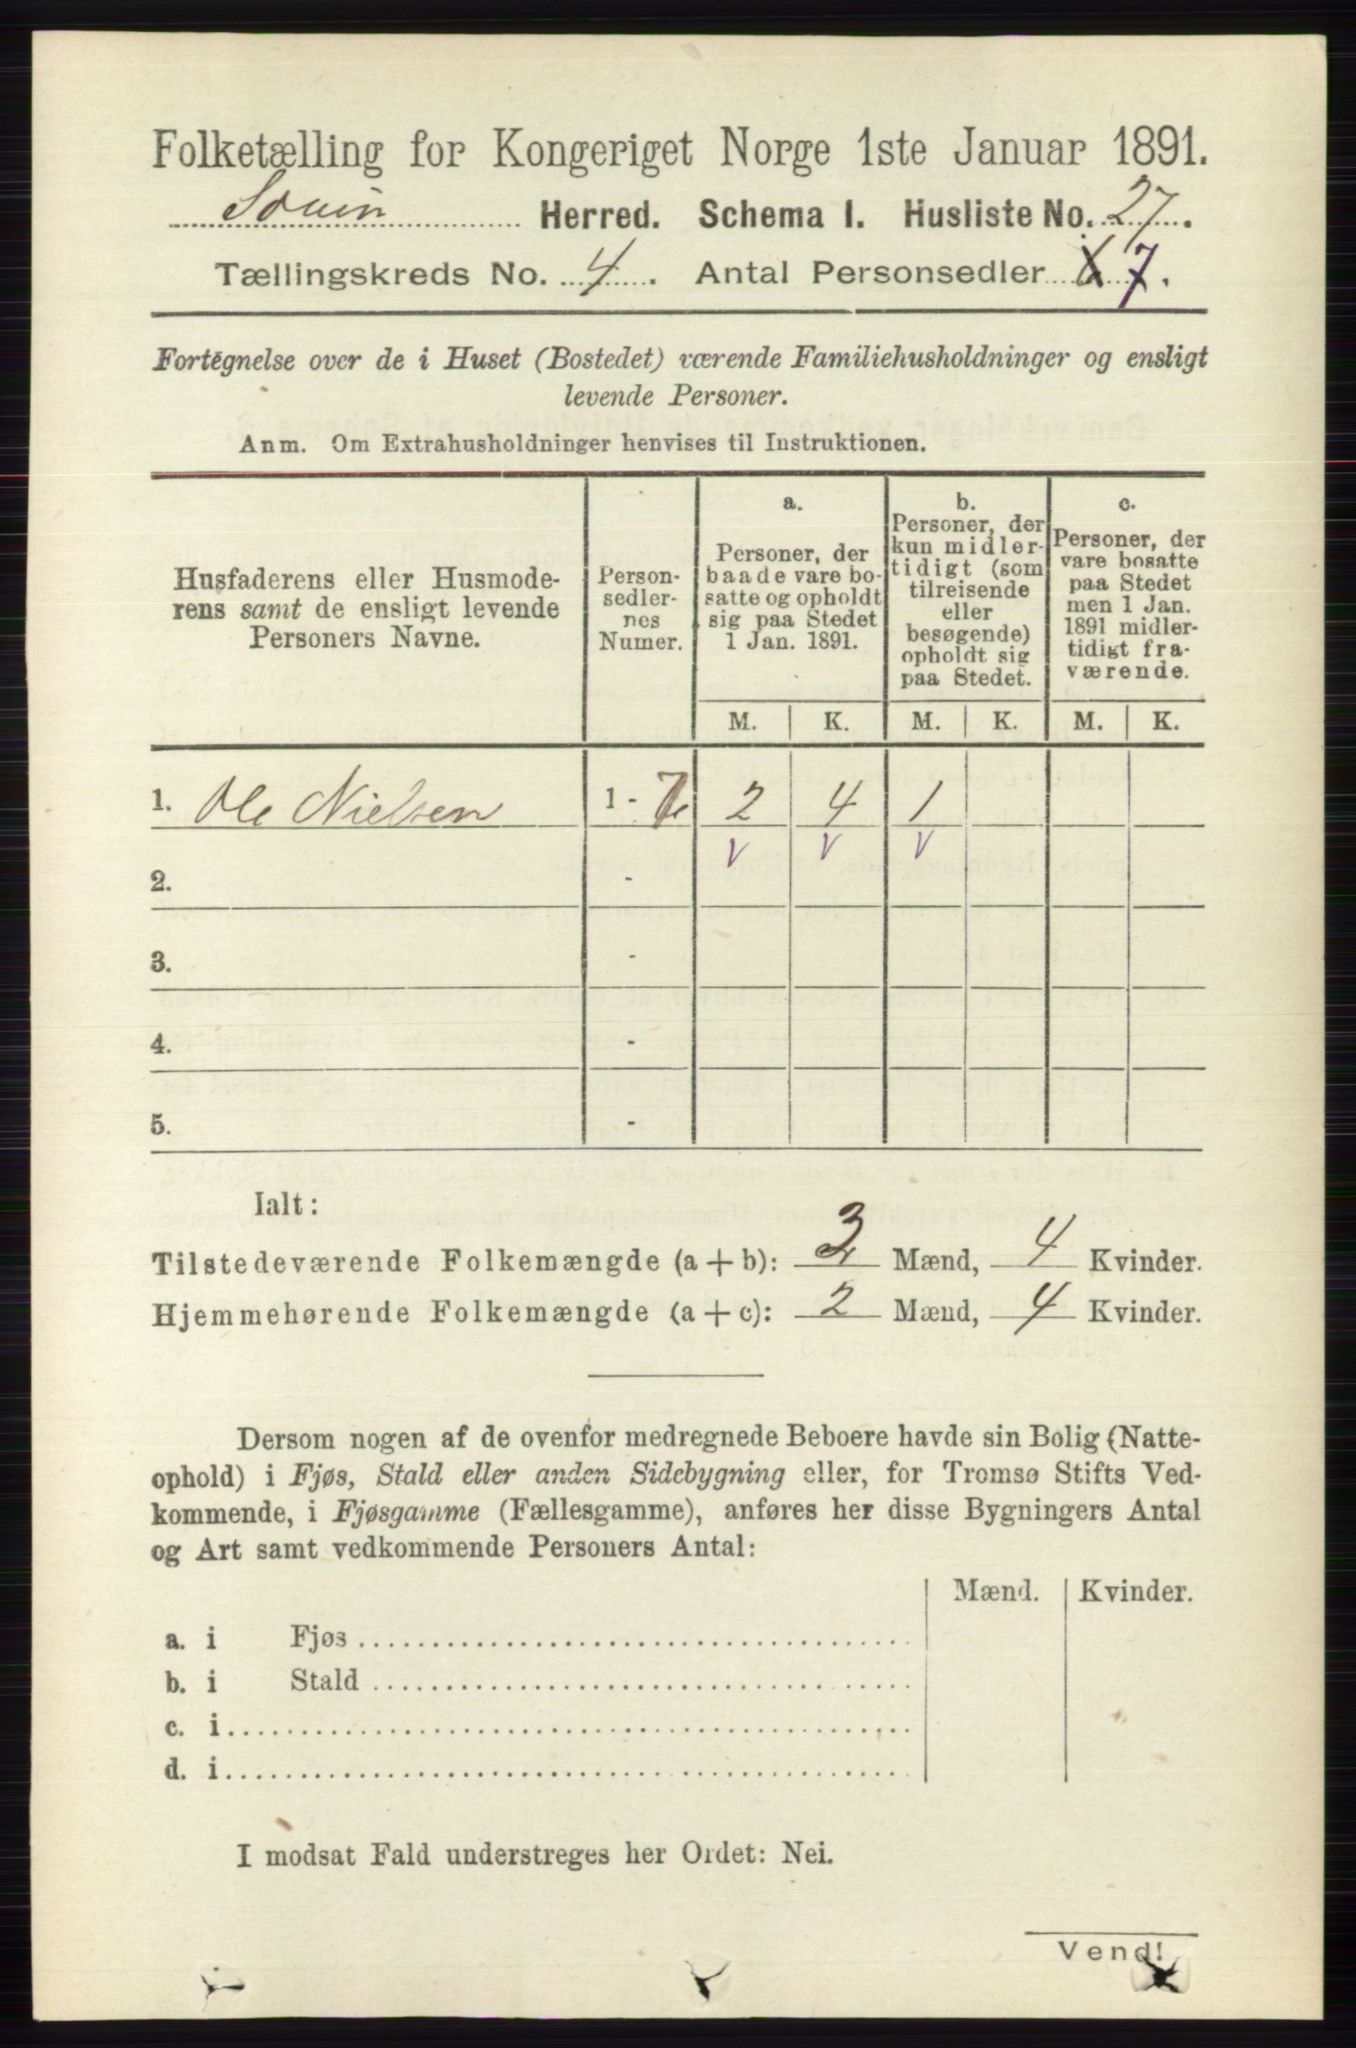 Folketælling for Kongeriget Norge 1ste Januar 1891.
Herred. Schema I. Husliste No. 27.
Tællingskreds No. 4. Antal Personsedler 6 7.
Fortegnelse over de i Huset (Bostedet) værende Familiehusholdninger og ensligt
levende Personer.
Anm. Om Extrahusholdninger henvises til Instruktionen.
Husfaderens eller Husmode-
rens samt de ensligt levende
Personers Navne.
Person-
sedler-
nes
Numer.
a.
Personer, der
baade vare bo-
satte og opholdt
sig paa Stedet
1 Jan. 1891.
b.
Personer, der
kun midler-
tidigt (som
tilreisende
eller
besøgende)
opholdt sig
paa Stedet.
c.
Personer, der
vare bosatte
paa Stedet
men 1 Jan.
1891 midler-
tidigt fra-
værende.
M. K. M. K. M. K.
1. Ole Nielsen 1 - 7 2 4 1
v v v
2. -
3. -
4. -
5. -
Ialt:
Tilstedeværende Folkemængde (a + b): 3 Mænd, 4 Kvinder.
Hjemmehørende Folkemængde (a + c): 2 Mænd, 4 Kvinder.
Dersom nogen af de ovenfor medregnede Beboere havde sin Bolig (Natte-
ophold) i Fjøs, Stald eller anden Sidebygning eller, for Tromsø Stifts Ved-
kommende, i Fjøsgamme (Fællesgamme), anføres her disse Bygningers Antal
og Art samt vedkommende Personers Antal:
Mænd. Kvinder.
a. i Fjøs
b. i Stald
c. i
d. i
I modsat Fald understreges her Ordet: Nei.
Vend!